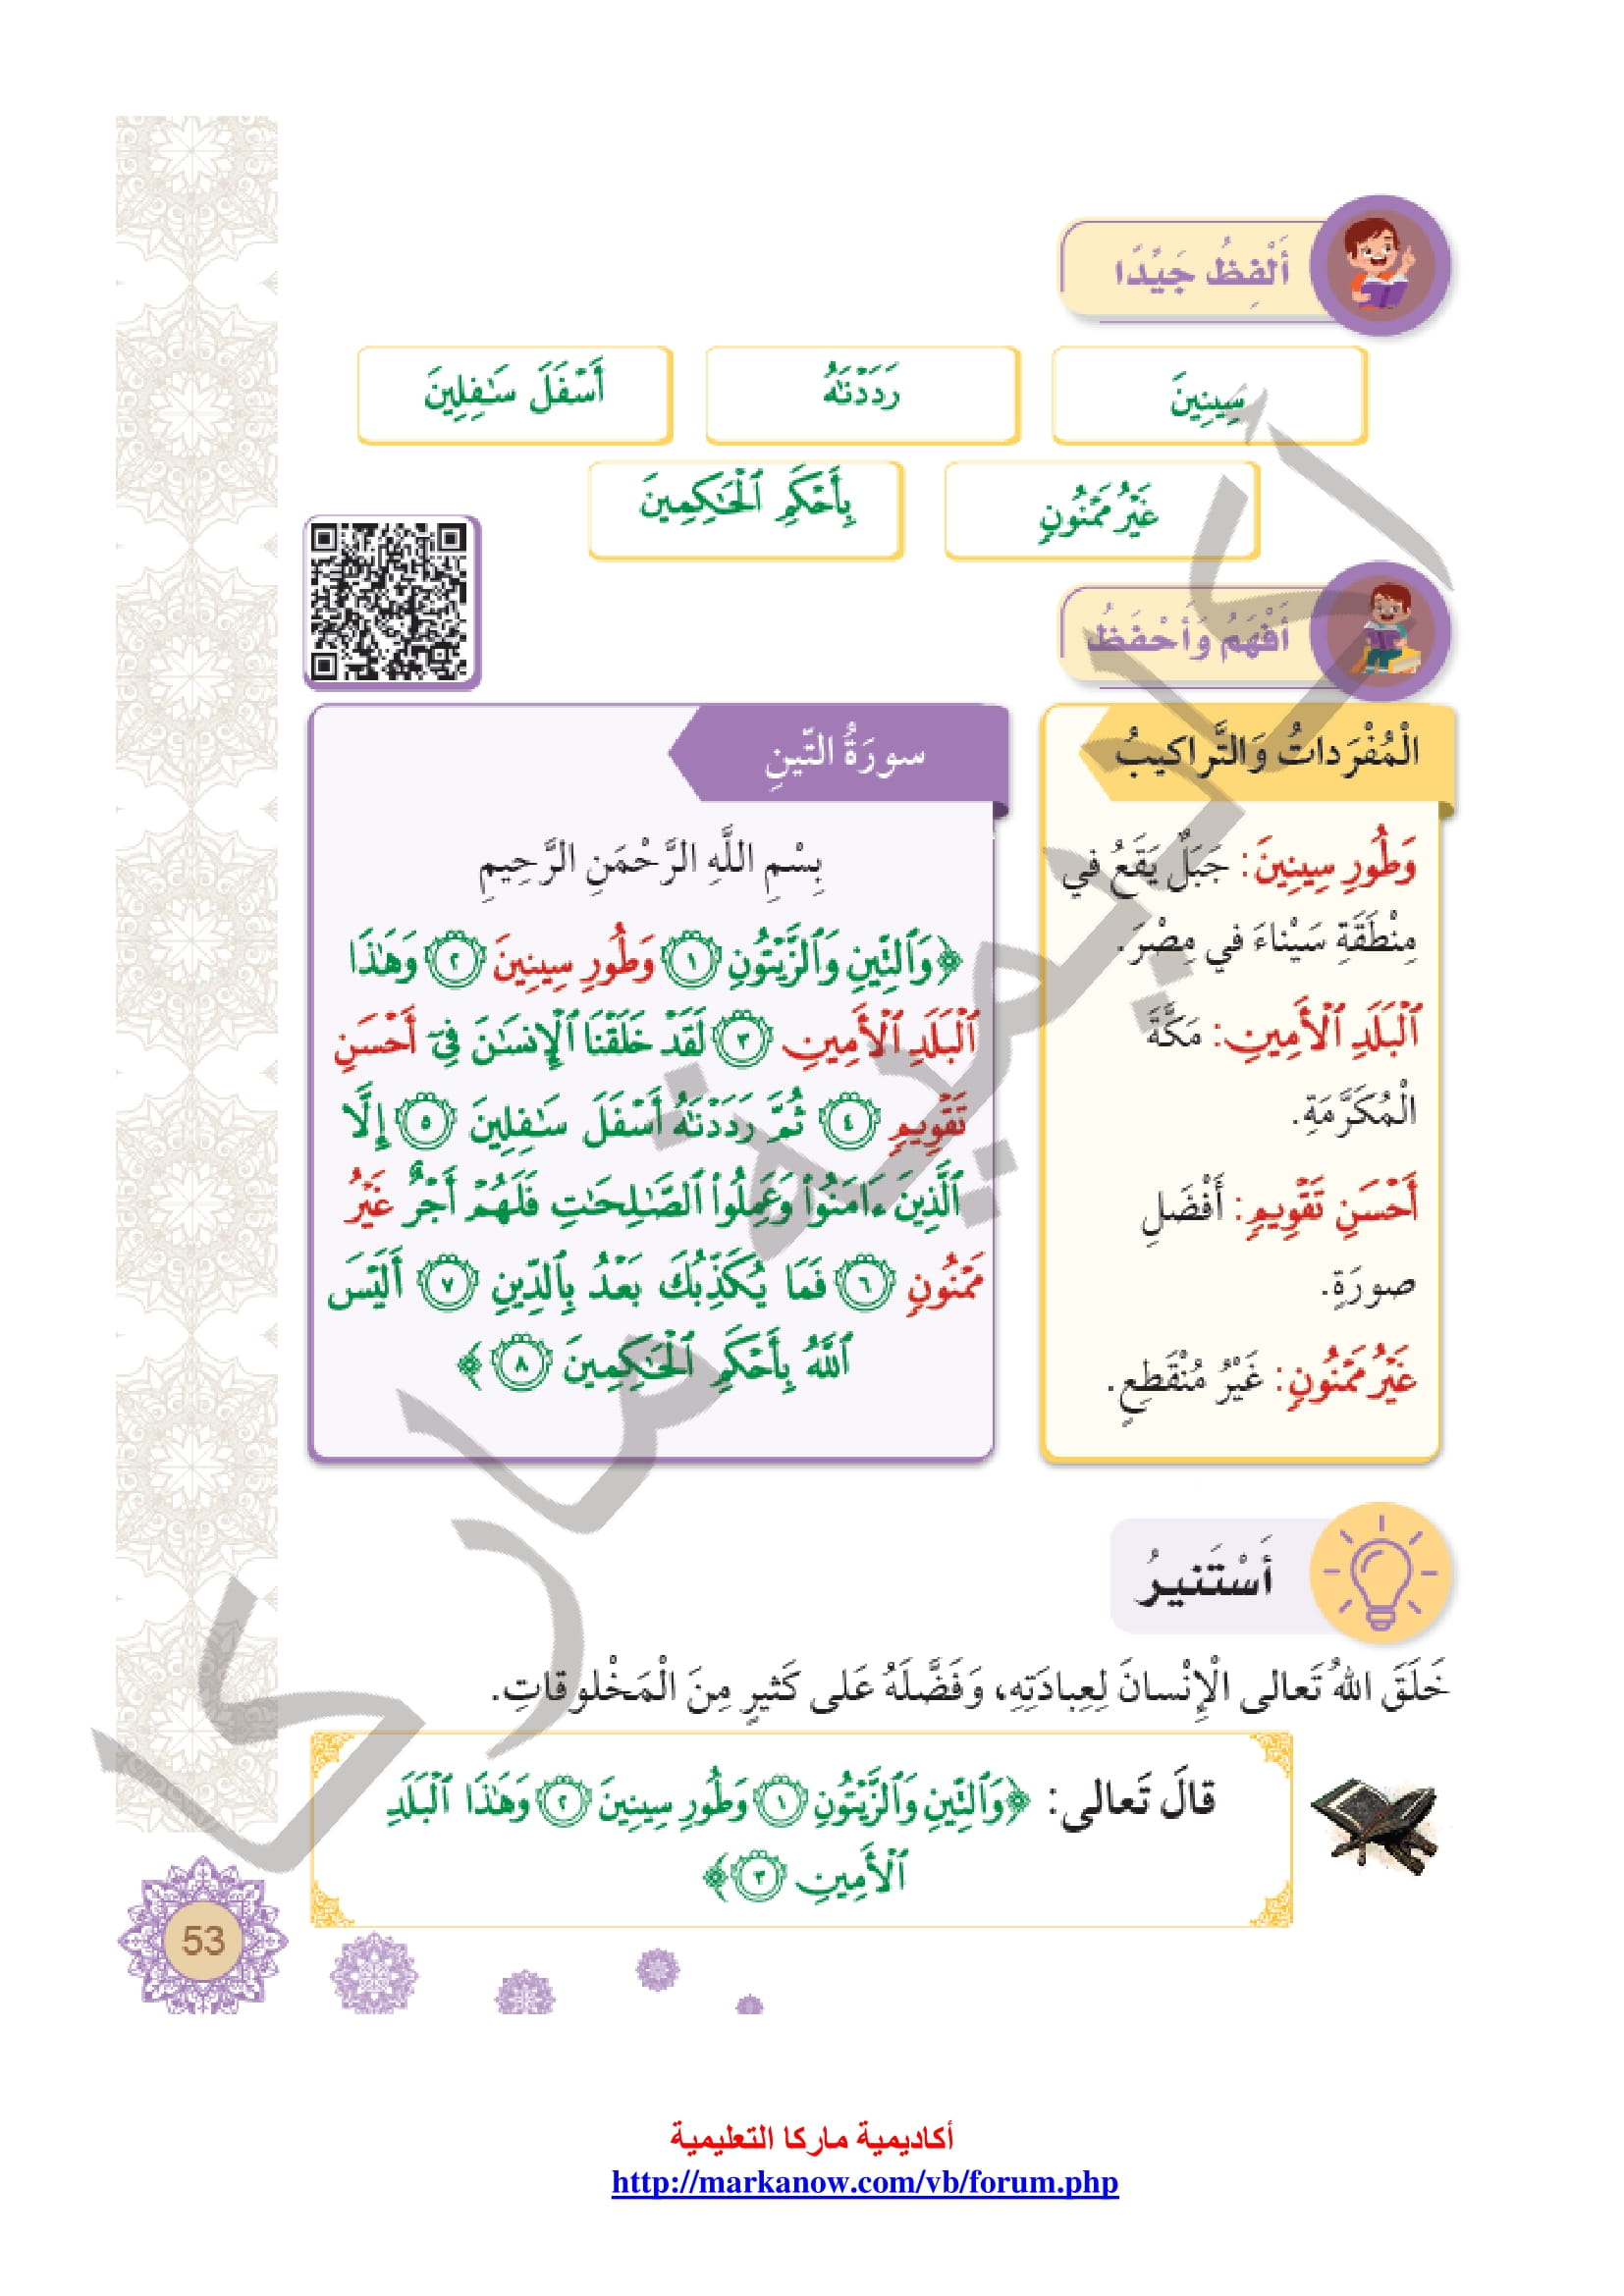 أَلْفِظُ جَيِّدًا
سِينِينَ
رَدَدْنَٰهُ
أَسْفَلَ سَٰفِلِينَ
غَيْرُ مَمْنُونٍ
بِأَحْكَمِ ٱلْحَٰكِمِينَ
أَفْهَمُ وَأَحْفَظُ
الْمُفْرَداتُ وَالتَّراكيبُ
وَطُورِ سِينِينَ: جَبَلٌ يَقَعُ في
مِنْطَقَةِ سَيْناءَ في مِصْرَ.
ٱلْبَلَدِ ٱلْأَمِينِ: مَكَّةَ
الْمُكَرَّمَةِ.
أَحْسَنِ تَقْوِيمٍ: أَفْضَلِ
صورَةٍ.
غَيْرُ مَمْنُونٍ: غَيْرُ مُنْقَطِعٍ.
سورَةُ التّينِ
بِسْمِ اللَّهِ الرَّحْمَنِ الرَّحِيمِ
﴿وَٱلتِّينِ وَٱلزَّيْتُونِ ١ وَطُورِ سِينِينَ ٢ وَهَٰذَا
ٱلْبَلَدِ ٱلْأَمِينِ ٣ لَقَدْ خَلَقْنَا ٱلْإِنسَٰنَ فِىٓ أَحْسَنِ
تَقْوِيمٍ ٤ ثُمَّ رَدَدْنَٰهُ أَسْفَلَ سَٰفِلِينَ ٥ إِلَّا
ٱلَّذِينَ ءَامَنُوا۟ وَعَمِلُوا۟ ٱلصَّٰلِحَٰتِ فَلَهُمْ أَجْرٌ غَيْرُ
مَمْنُونٍ ٦ فَمَا يُكَذِّبُكَ بَعْدُ بِٱلدِّينِ ٧ أَلَيْسَ
ٱللَّهُ بِأَحْكَمِ ٱلْحَٰكِمِينَ ٨﴾
أَسْتَنيرُ
خَلَقَ اللهُ تَعالى الْإِنْسانَ لِعِبادَتِهِ، وَفَضَّلَهُ عَلى كَثيرٍ مِنَ الْمَخْلوقاتِ.
قالَ تَعالى: ﴿وَٱلتِّينِ وَٱلزَّيْتُونِ ١ وَطُورِ سِينِينَ ٢ وَهَٰذَا ٱلْبَلَدِ
ٱلْأَمِينِ ٣﴾
53
أكاديمية ماركا
أكاديمية ماركا التعليمية
http://markanow.com/vb/forum.php